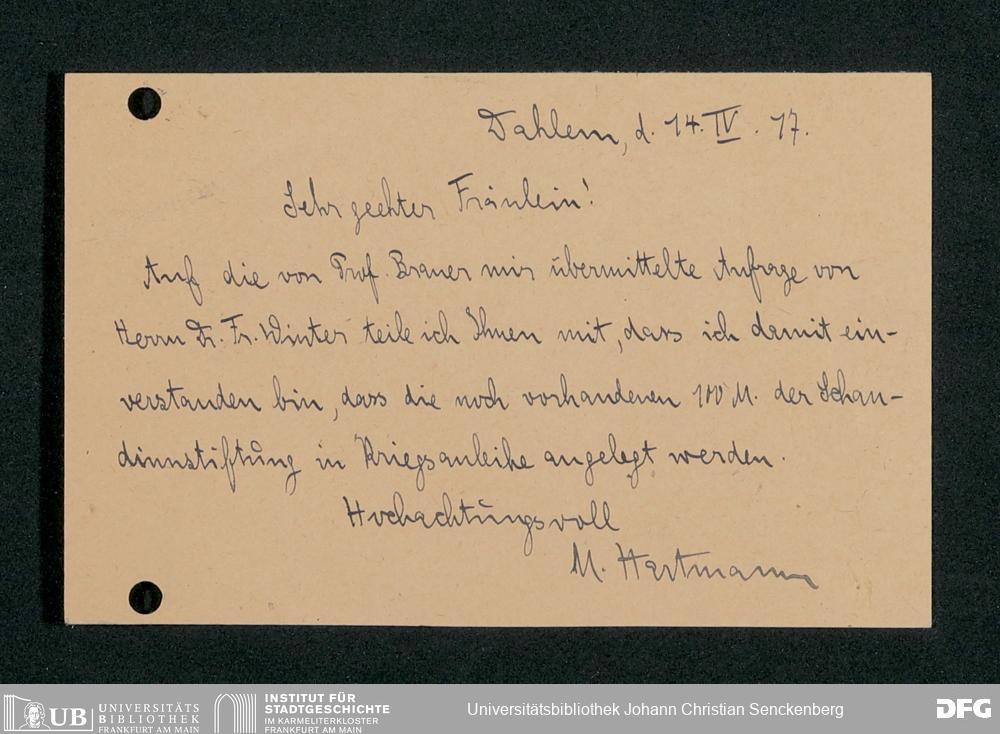 Dahlem, d. 14. IV. 17.
Sehr geehter Fräulein!
Auf die von Prof. Brauer mir übermittelte Anfrage von
Herrn Dr. Fr. Winter teile ich Ihnen mit, dass ich damit ein-
verstanden bin, dass die noch vorhandenen 100 M. der Schau-
dinnstiftung in Kriegsanleihe angelegt werden.
Hochachtungsvoll
M. Hartmann
UB UNIVERSITÄTS
BIBLIOTHEK
FRANKFURT AM MAIN
INSTITUT FÜR
STADTGESCHICHTE
IM KARMELITERKLOSTER
FRANKFURT AM MAIN
Universitätsbibliothek Johann Christian Senckenberg
DFG